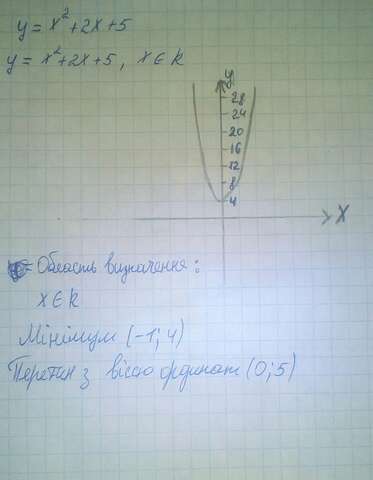 y = x² + 2x + 5
y = x² + 2x + 5, x ∈ R
y
28
24
20
16
12
8
4
x
Область визначення:
x ∈ R
Мінімум (-1; 4)
Перетин з віссю ординат (0; 5)